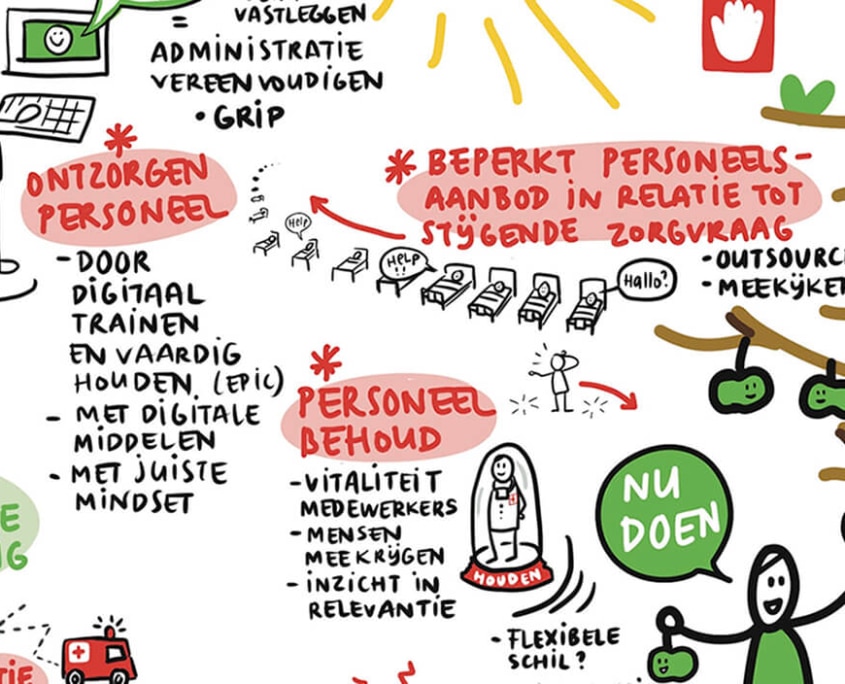 VASTLEGGEN
=
ADMINISTRATIE
VEREENVOUDIGEN
• GRIP
* ONTZORGEN
PERSONEEL
- DOOR
DIGITAAL
TRAINEN
EN VAARDIG
HOUDEN. (EPIC)
- MET DIGITALE
MIDDELEN
- MET JUISTE
MINDSET
* BEPERKT PERSONEELS-
AANBOD IN RELATIE TOT
STIJGENDE ZORGVRAAG
Help
HELP
!!
Hallo?
• OUTSOURCI
• MEEKIJKE
* PERSONEEL
BEHOUD
- VITALITEIT
MEDEWERKERS
- MENSEN
MEEKRIJGEN
- INZICHT IN
RELEVANTIE
HOUDEN
- FLEXIBELE
SCHIL?
NU
DOEN
E
G
TIE